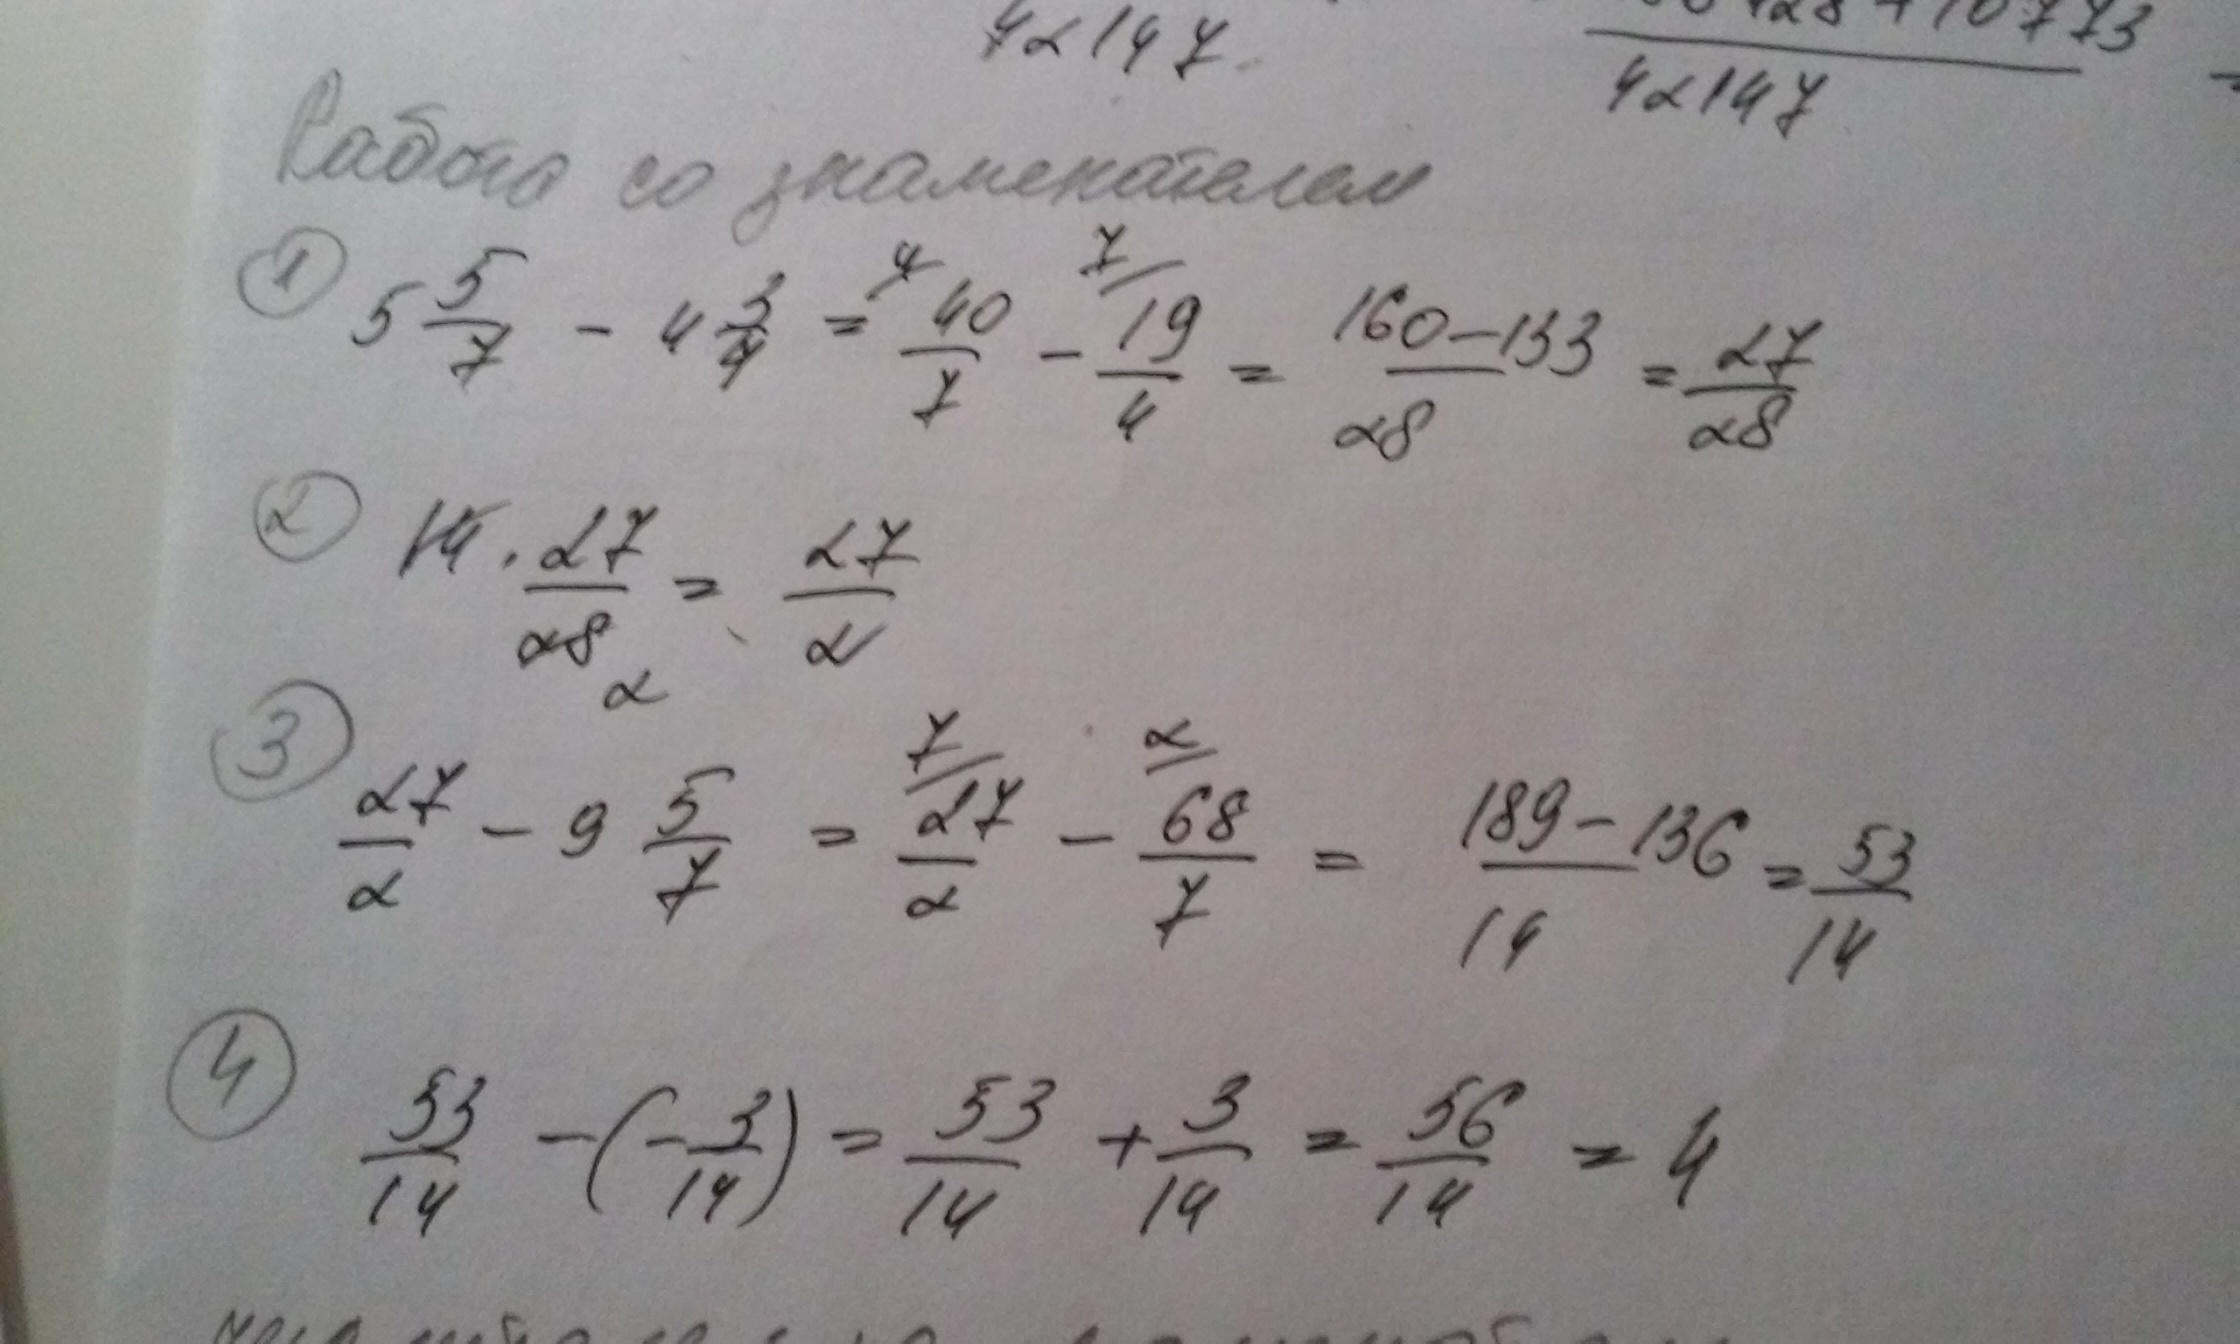 42147
10773
42147
Работа со знаменателем
① 5 5/7 - 4 3/4 = 4/ 40/7 - 7/ 19/4 = 160-133/28 = 27/28
② 14 · 27/28 2 = 27/2
③ 27/2 - 9 5/7 = 7/ 27/2 - 2/ 68/7 = 189-136/14 = 53/14
④ 53/14 - (- 3/14) = 53/14 + 3/14 = 56/14 = 4